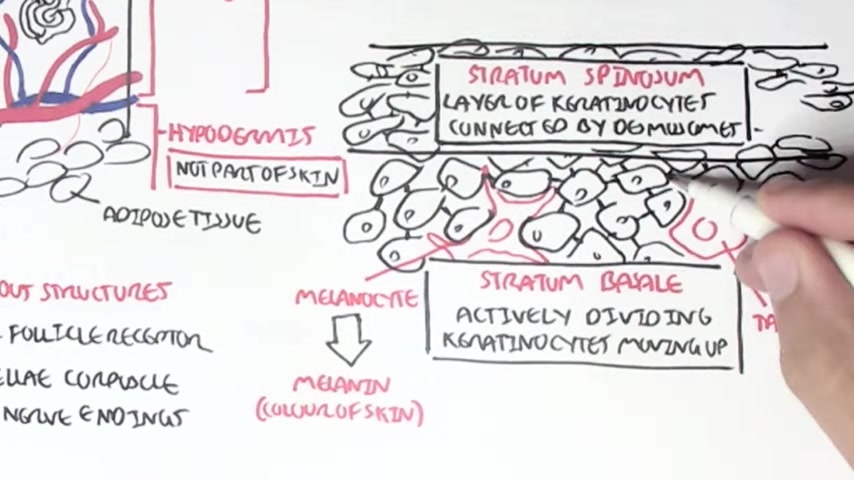 STRATUM SPINOSUM
LAYER OF KERATINOCYTES
CONNECTED BY
HYPODERMIS
NOT PART OF SKIN
ADIPOSE TISSUE
OUT STRUCTURES
FOLLICLE RECEPTOR
CORPUSCLE
NERVE ENDINGS
MELANOCYTE
MELANIN
(COLOUR OF SKIN)
STRATUM BASALE
ACTIVELY DIVIDING
KERATINOCYTES MOVING UP